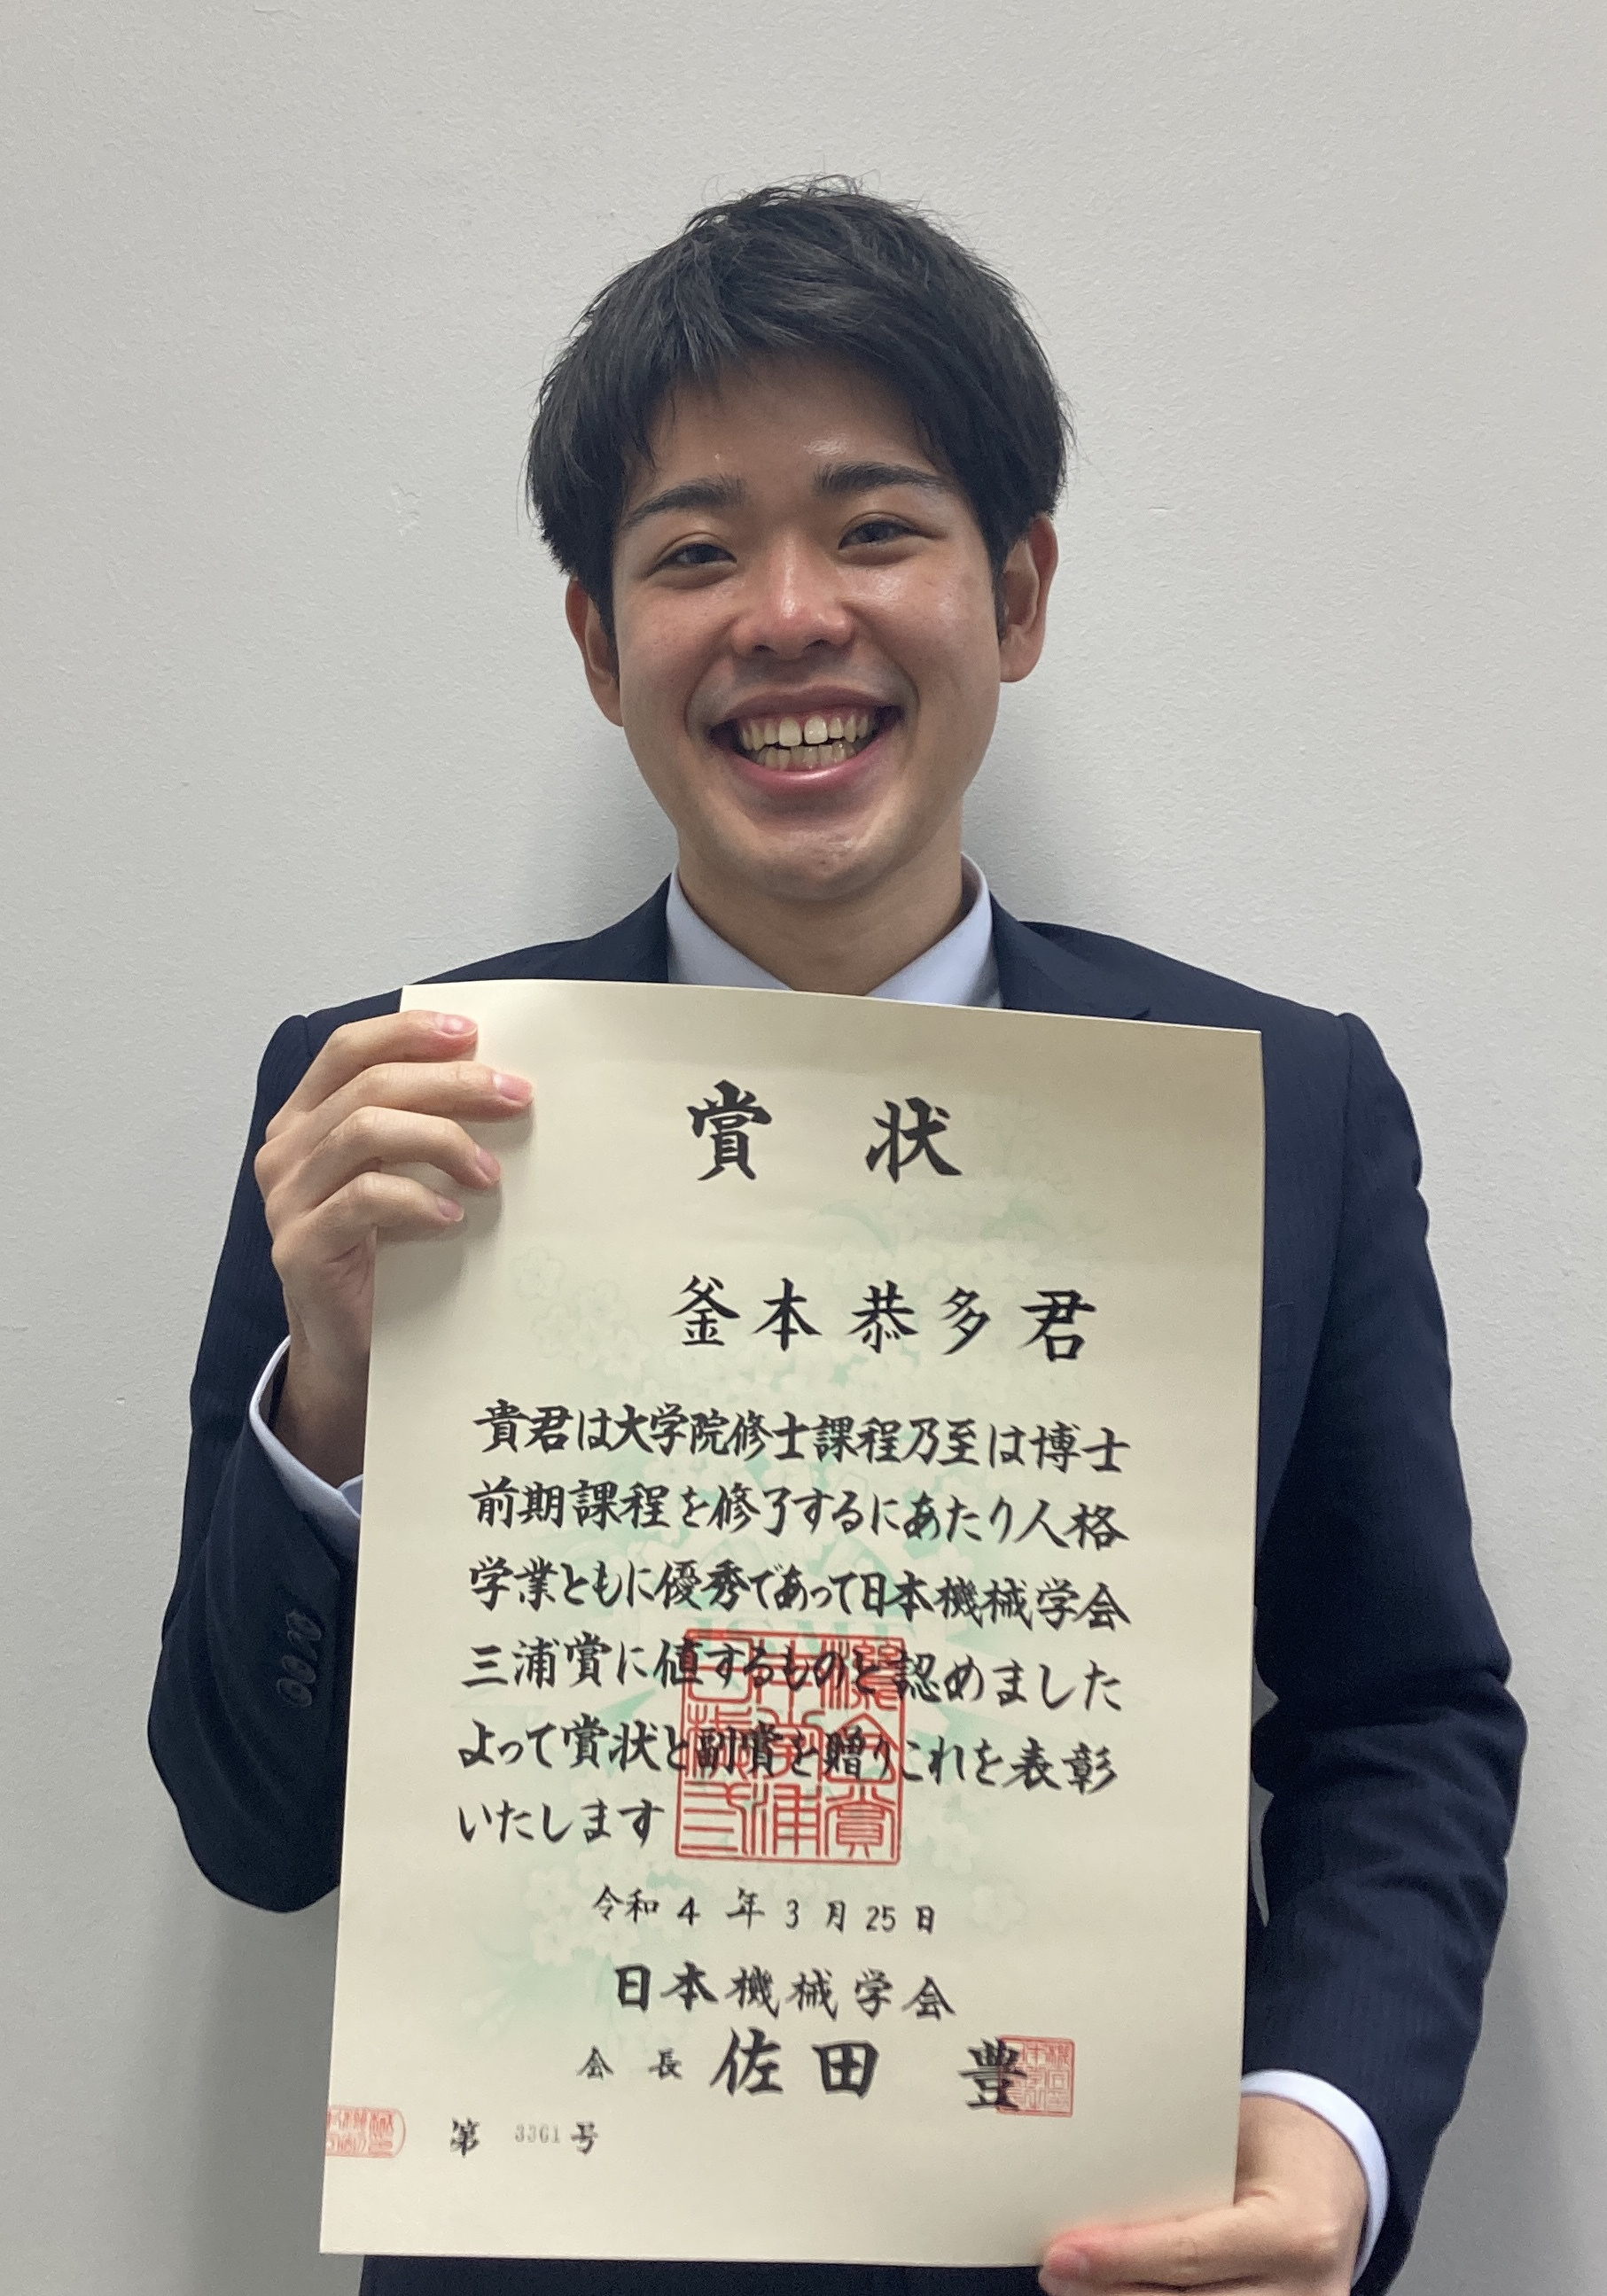 賞状
釜本恭多君
貴君は大学院修士課程乃至は博士
前期課程を修了するにあたり人格
学業ともに優秀であって日本機械学会
三浦賞に値するものと認めました
よって賞状と副賞を贈りこれを表彰
いたします
令和4年3月25日
日本機械学会
会長 佐田 豊
第 3361 号